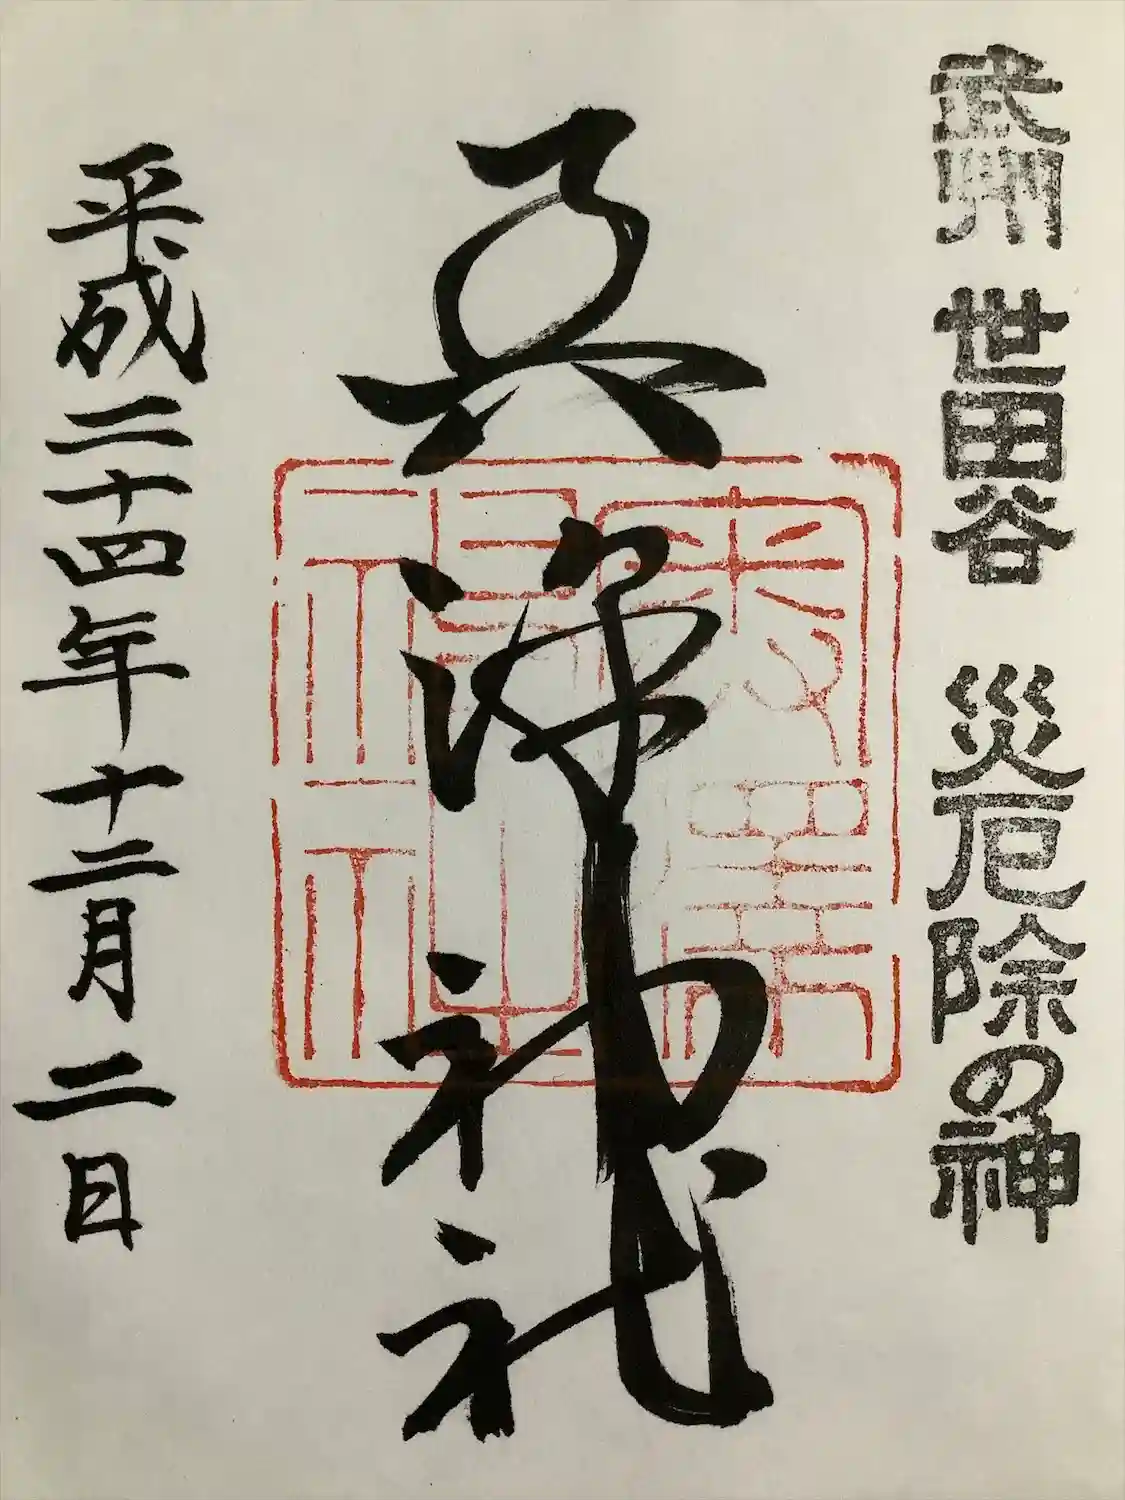 武州 世田谷 災厄除の神
奥澤神社
奥澤神社
平成二十四年 十二月 二日